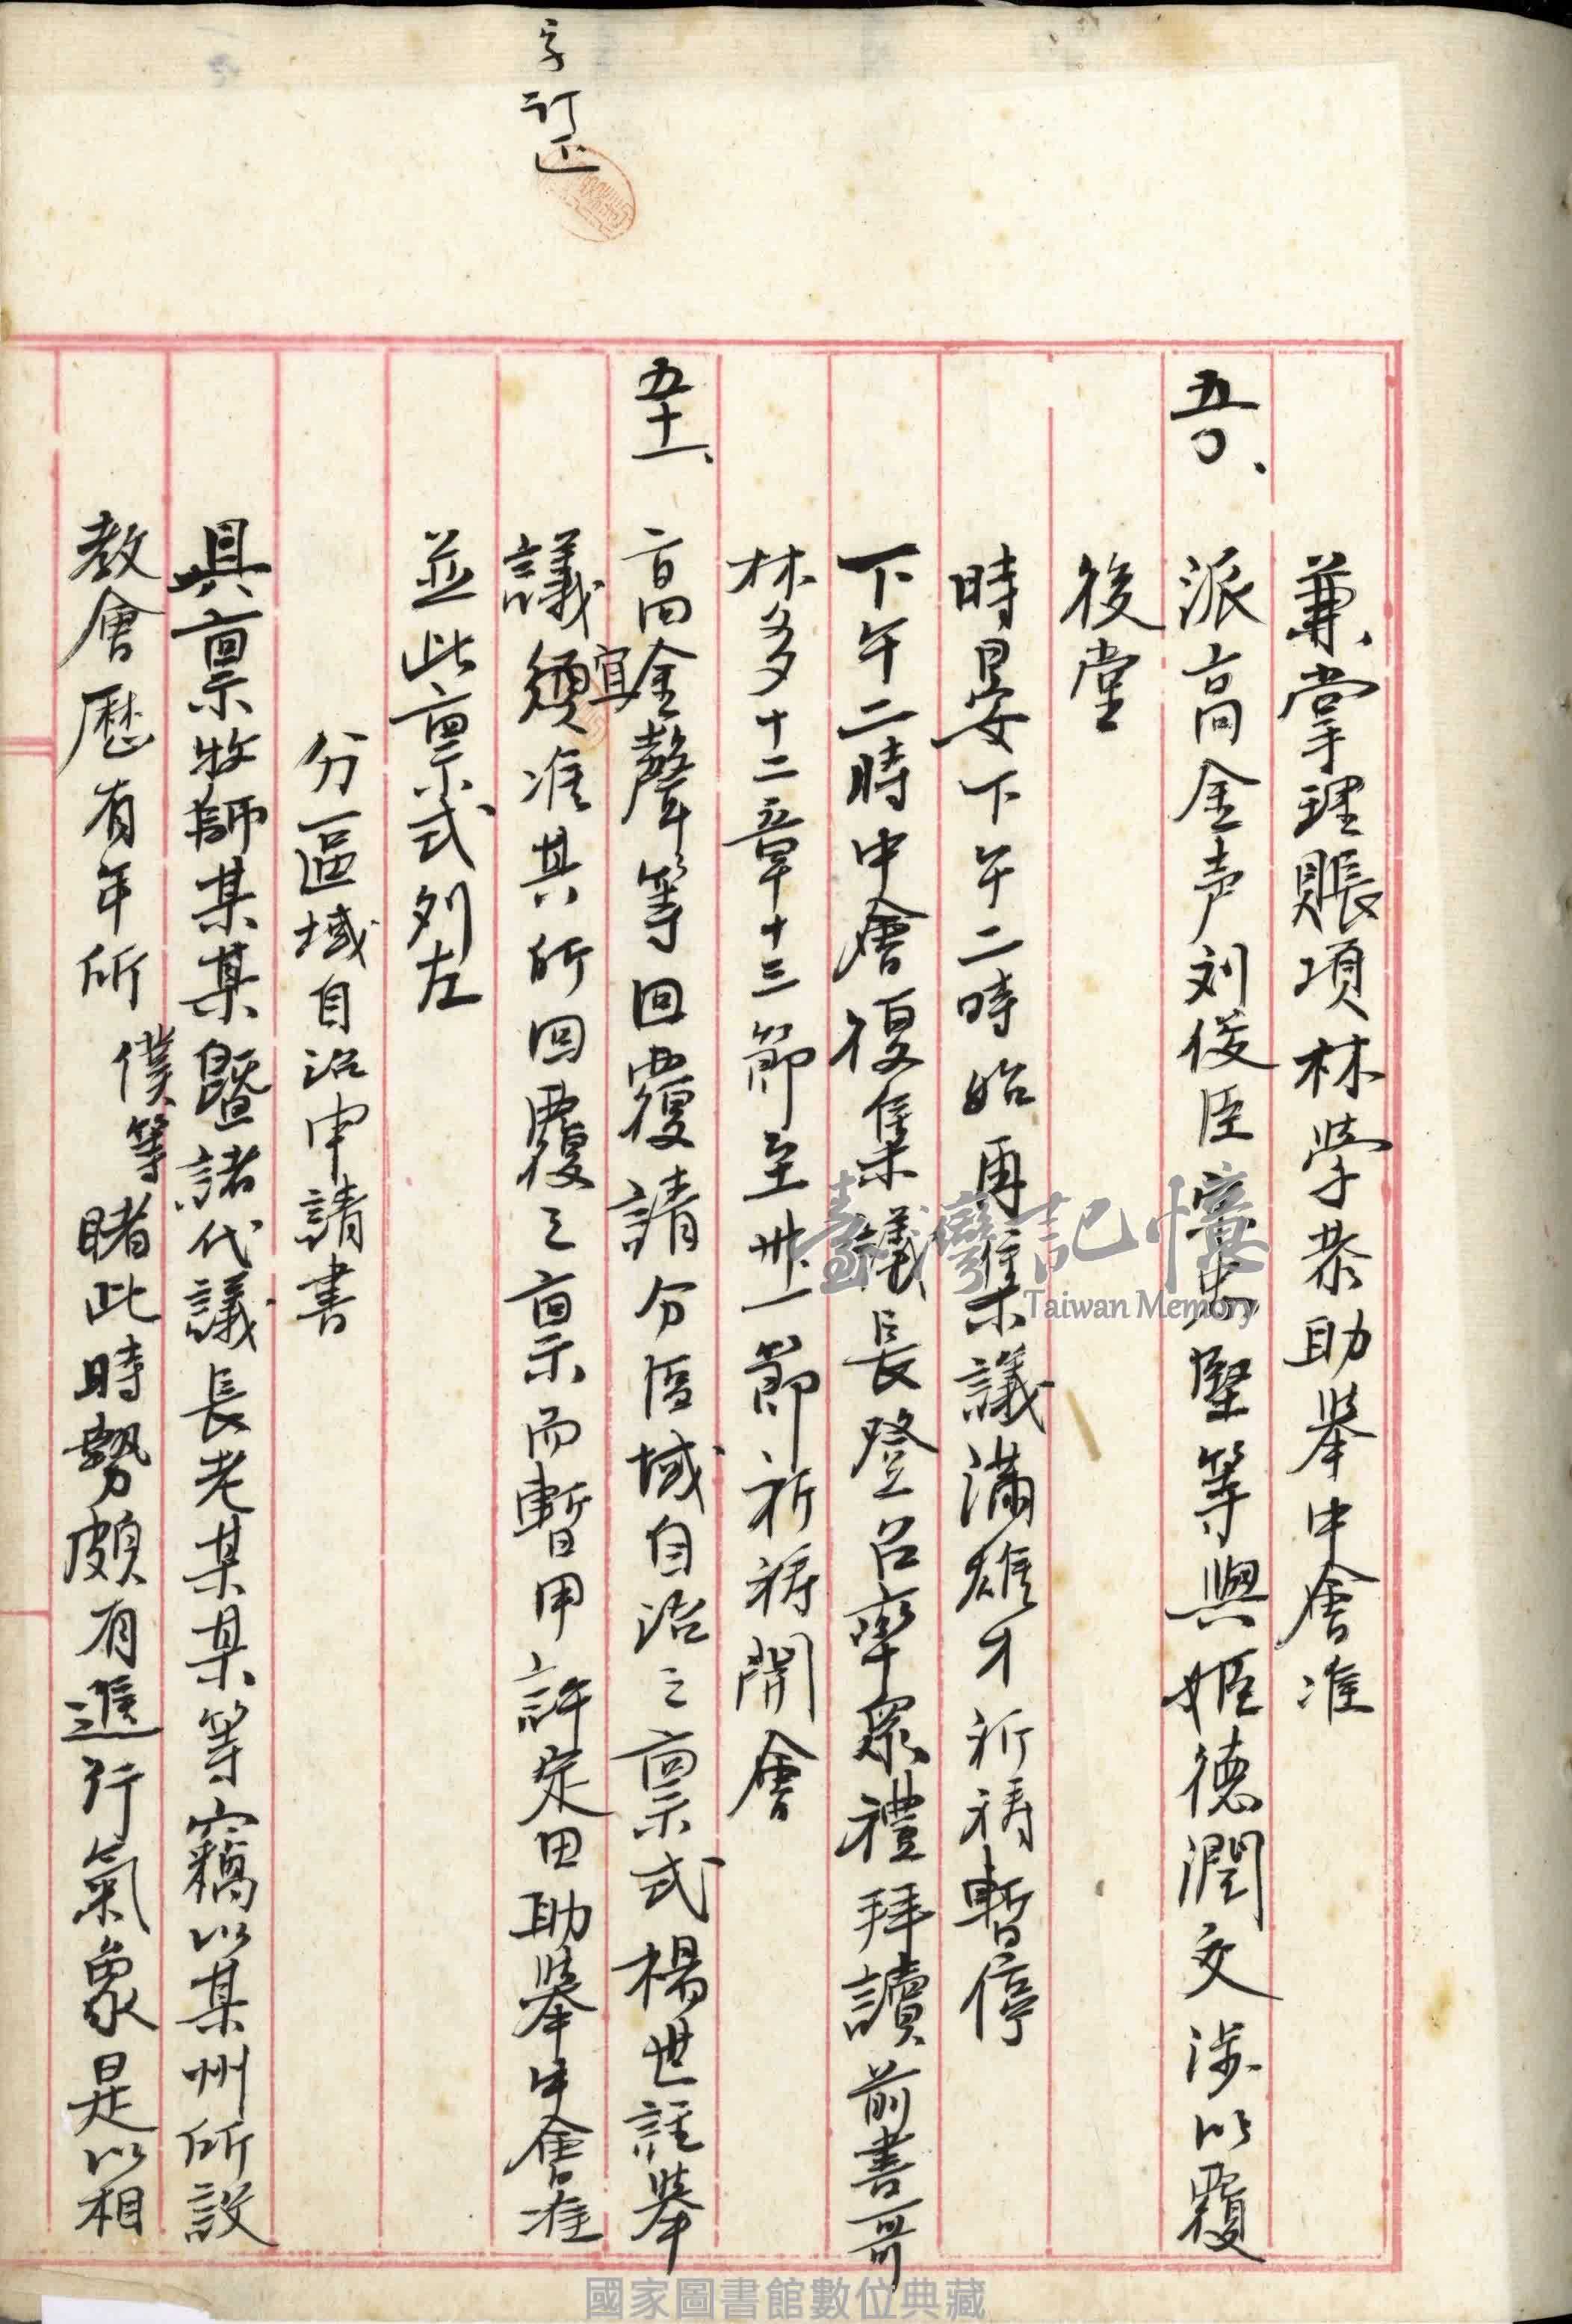 字訂正
兼掌理賬項林学恭助舉中會准
五〇、派高金声刘俊臣 忠堅等與姬德潤交涉以覆
後堂
時晏下午二時始再集議滿雄才祈禱暫停
下午二時中會復集議長登位率眾禮拜讀前書哥
林多十二章十三節至卅一節祈禱開會
五十一、高金聲等回覆請分區域自治之稟式楊世註舉
議宜准其所回覆之稟而暫用許定田助舉中會准
並此稟式列左
分區域自治申請書
具稟牧師某某暨諸代議長老某某等竊以某州所設
教會歷有年所僕等睹此時勢頗有進行氣象是以相
臺灣記憶
Taiwan Memory
國家圖書館數位典藏